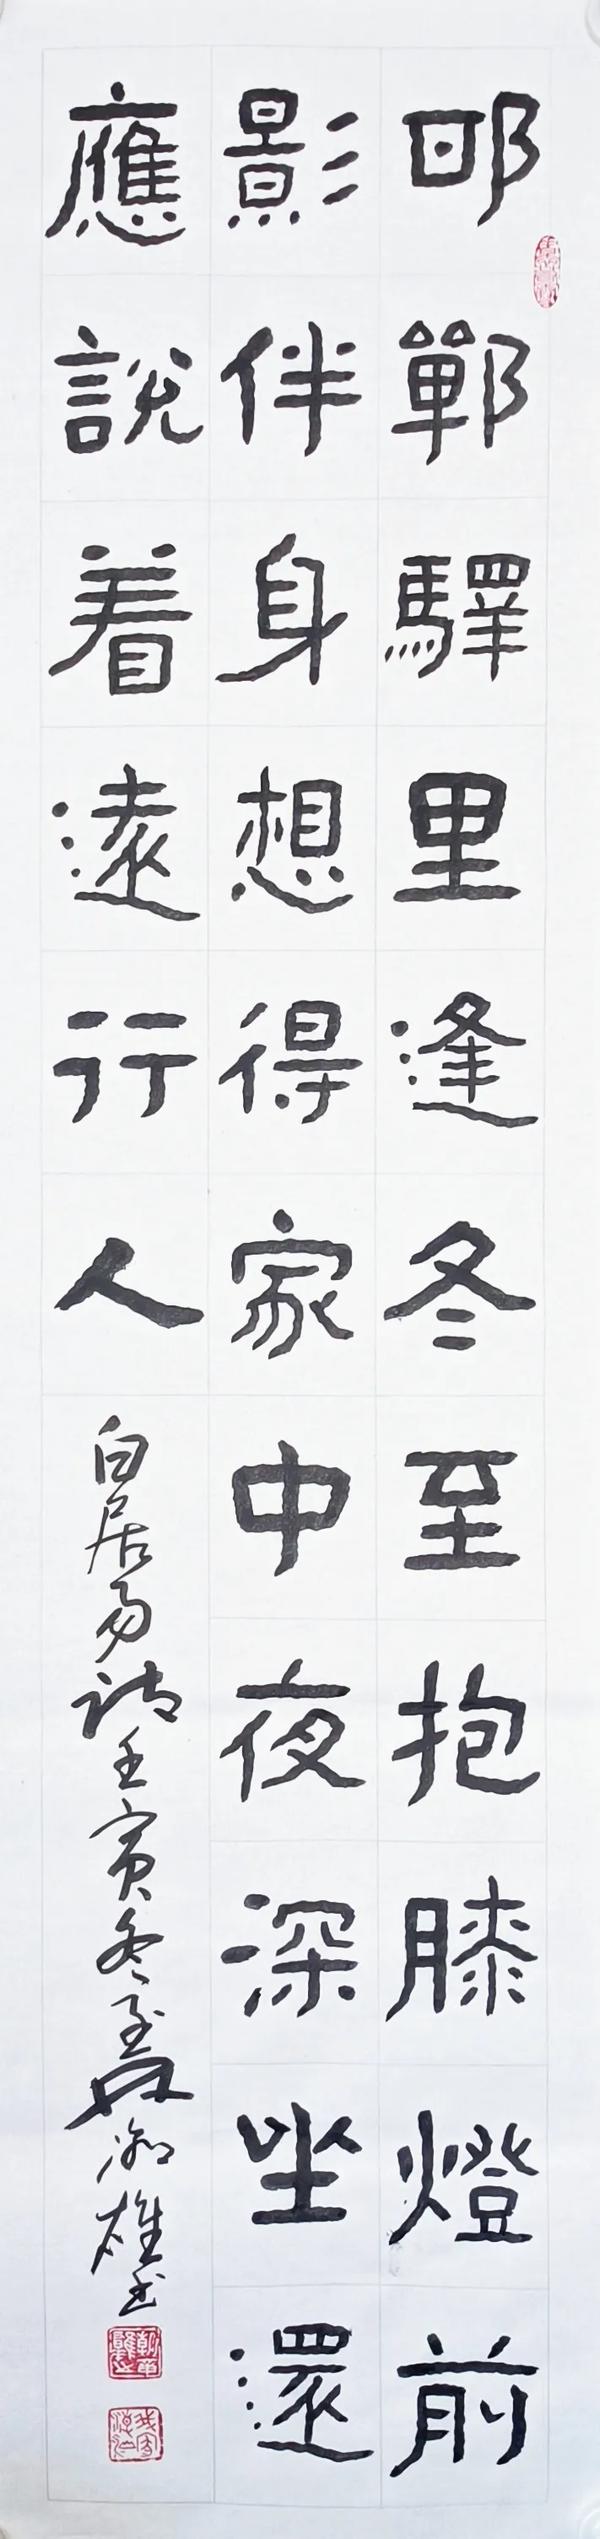 邯鄲驛里逢冬至抱膝燈前
影伴身想得家中夜深坐還
應說着遠行人
白居易詩壬寅冬至 雄书